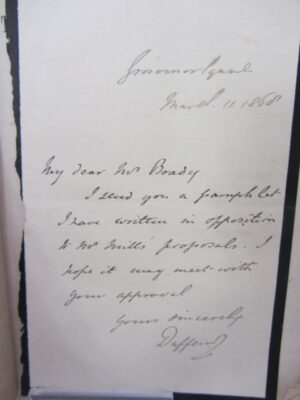 Grosvenor Square
March. 11. 1868
My dear Mr Brady
I send you a pamphlet
I have written in opposition
to Mr Mill's proposals. I
hope it may meet with
your approval
Yours sincerely
Dufferin